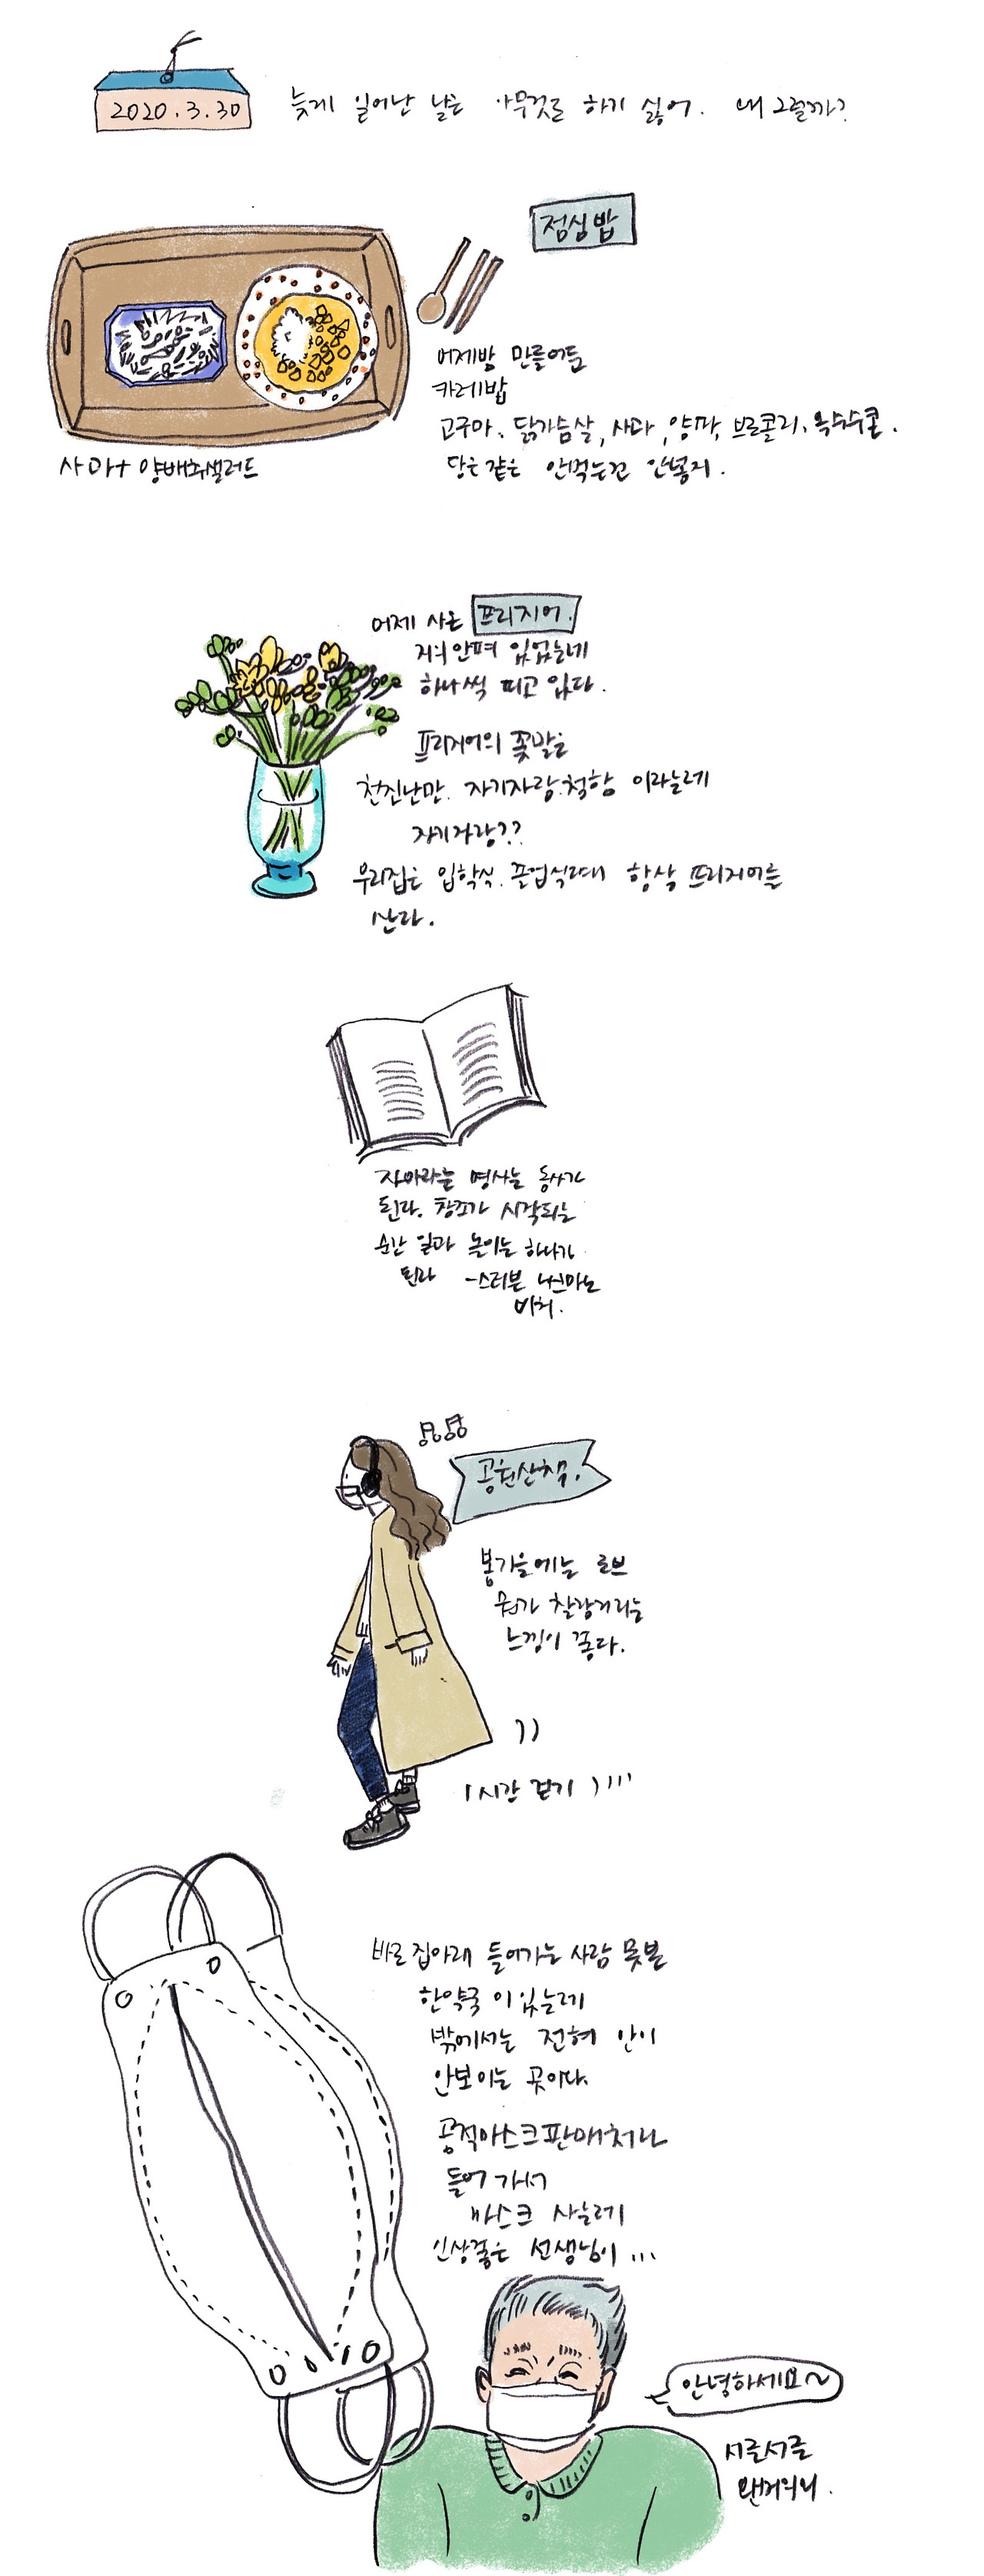 2020.3.30
늦게 일어난 날은 아무것도 하기 싫어. 왜 그럴까?
점심밥
어제밤 만들어둔
카레밥
고구마, 닭가슴살, 사과, 양파, 브로콜리, 옥수수콘.
당근같은 안먹는건 안넣지.
사과+양배추샐러드
어제 사온 프리지어.
거의 안펴 있었는데
하나씩 피고 있다.
프리지어의 꽃말은
천진난만. 자기자랑.청함 이라는데
자기자랑??
우리집은 입학식.졸업식때 항상 프리지어를
산다.
자아라는 명사는 동사가
된다. 창조가 시작되는
순간 일과 놀이는 하나가
된다 -스티븐 나흐마노
비치.
공원산책.
봄가을에는
뭔가 찰랑거리는
느낌이 좋다.
1시간 걷기
바로 집아래 들어가는 사람 못본
한약국 이 있는데
밖에서는 전혀 안이
안보이는 곳이다.
공적마스크판매처라
들어 가서
마스크 사는데
인상좋은 선생님이 ...
안녕하세요~
서글서글